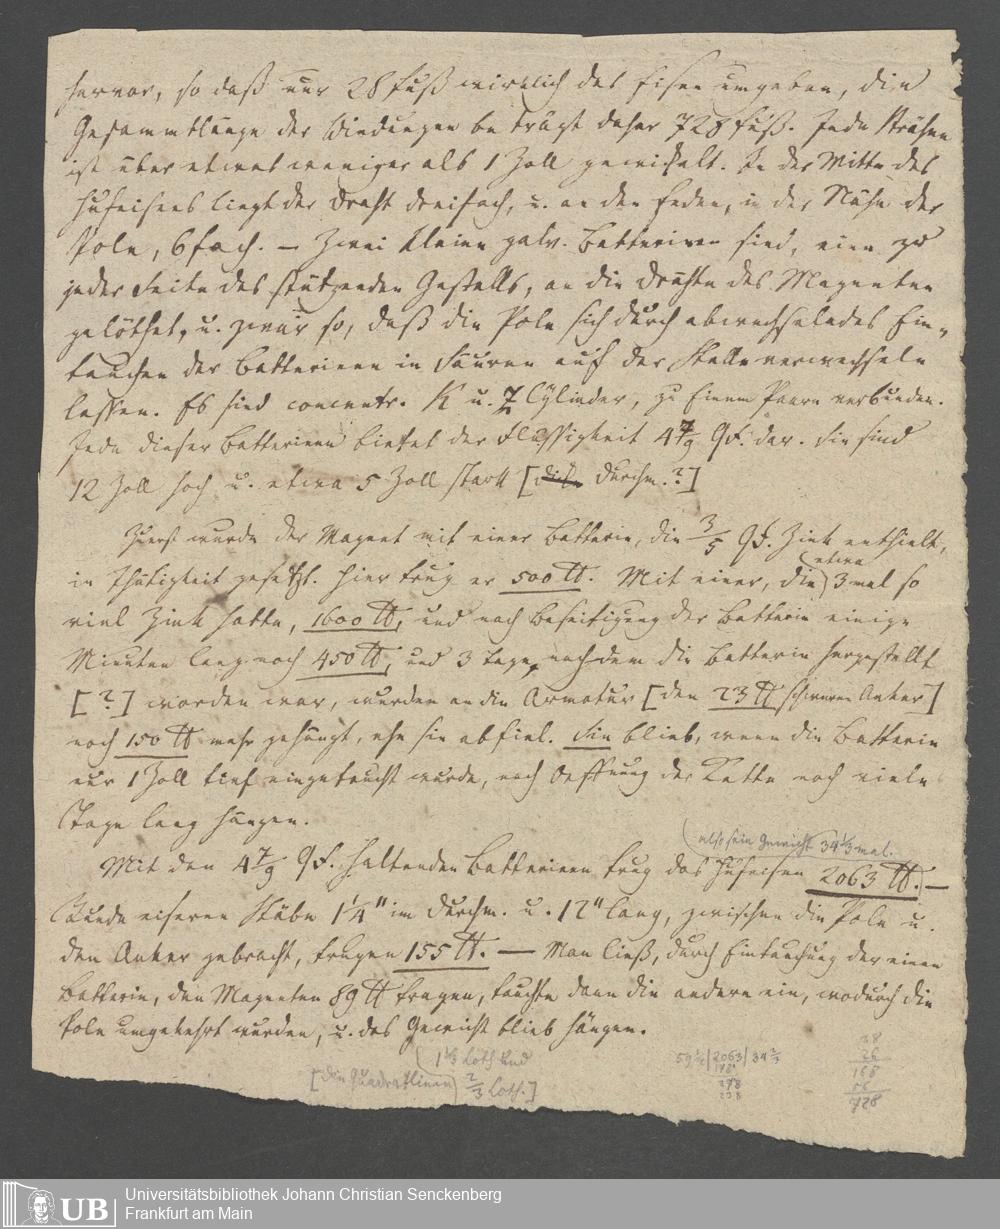 hervor, so daß nur 28 Fuß wirklich das Eisen umgeben, die
Gesammtlänge der Windungen beträgt daher 728 Fuß. Jede Strähne
ist über etwas weniger als 1 Zoll gewickelt. In der Mitte des
Hufeisens liegt der Draht dreifach, u. an den Enden, in der Nähe der
Pole, 6fach. — Zwei kleine galv. Batterieen sind, eine zu
jeder Seite des stützenden Gestells, an die Drähte des Magneten
gelöthet, u. zwar so, daß die Pole sich durch abwechselndes Ein-
tauchen der Batterieen in Säuren auf der Stelle verwechseln
lassen. Es sind concentr. K u. Z Cylinder, zu Einem Paare verbunden.
Jede dieser Batterieen bietet der Flüssigkeit 4 7/9 QF. dar. Sie sind
12 Zoll hoch u. etwa 5 Zoll stark [dick Durchm.?]
Zuerst wurde der Magnet mit einer Batterie, die 3/5 QF. Zink enthielt,
in Thätigkeit gesetzt. Hier trug er 500 ℔. Mit einer, die etwa 3 mal so
viel Zink hatte, 1600 ℔, und nach Beseitigung der Batterie einige
Minuten lang noch 450 ℔, und 3 Tage, nachdem die Batterie hergestellt
[?] worden war, wurden an die Armatur [den 23 ℔ schweren Anker]
noch 150 ℔ mehr gehängt, ehe sie abfiel. Sie blieb, wenn die Batterie
nur 1 Zoll tief eingetaucht wurde, nach Oeffnung der Kette noch viele
Tage lang hängen.
(also sein Gewicht 34 1/3 mal.
Mit den 4 7/9 QF. haltenden Batterieen trug das Hufeisen 2063 ℔. —
Runde eiserne Stäbe 1 1/4" im Durchm. u. 12" lang, zwischen die Pole u.
den Anker gebracht, trugen 155 ℔. — Man ließ, durch Eintauchung der einen
Batterie, den Magneten 89 ℔ tragen, tauchte dann die andere ein, wodurch die
Pole umgekehrt wurden, u. das Gewicht blieb hängen.
(1 1/3 Loth und
[die Quadratlinien) 2/3 Loth.]
28
26
168
56
728
Universitätsbibliothek Johann Christian Senckenberg
Frankfurt am Main
UB